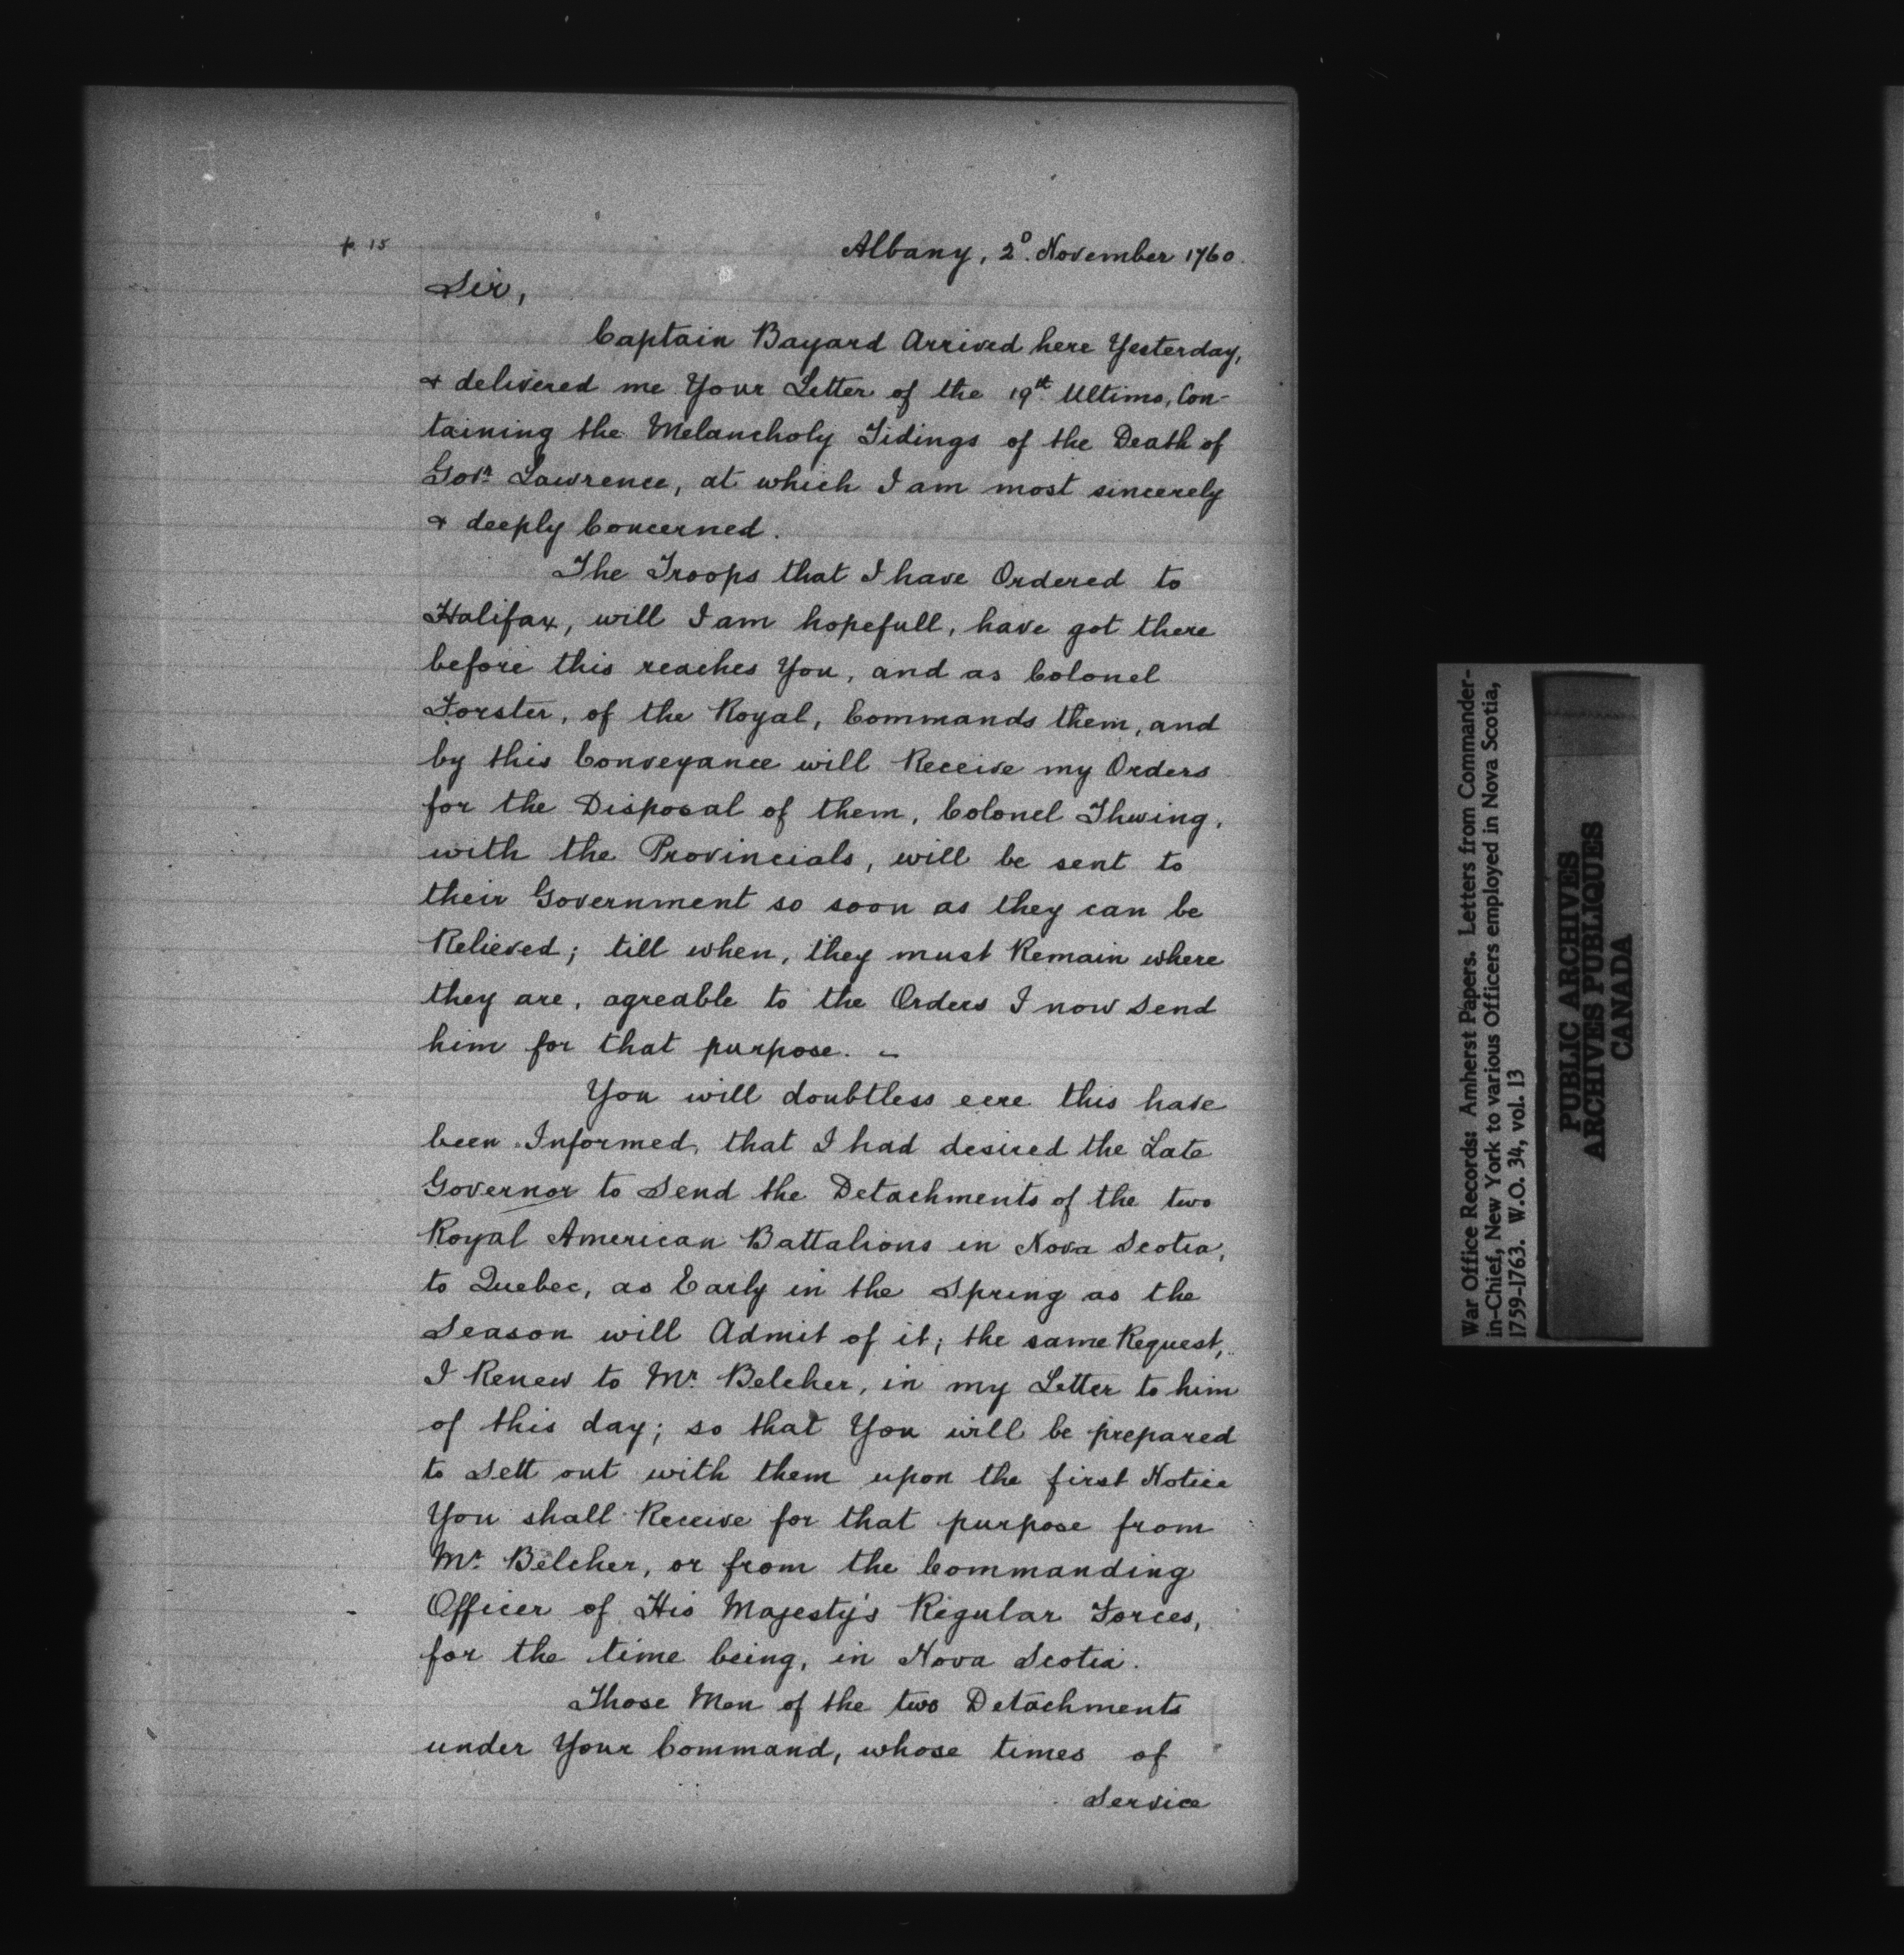 p. 15
Albany, 2d. November 1760.
Sir,
Captain Bayard Arrived here Yesterday,
& delivered me Your Letter of the 19th. Ultimo, Con-
taining the Melancholy Tidings of the Death of
Govr. Lawrence, at which I am most sincerely
& deeply Concerned.
The Troops that I have Ordered to
Halifax, will I am hopefull, have got there
before this reaches You, and as Colonel
Forster, of the Royal, Commands them, and
by this Conveyance will Receive my Orders
for the Disposal of them, Colonel Thwing,
with the Provincials, will be sent to
their Government so soon as they can be
Relieved; till when, they must Remain where
they are, agreable to the Orders I now Send
him for that purpose. –
You will doubtless eere this have
been Informed, that I had desired the Late
Governor to Send the Detachments of the two
Royal American Battalions in Nova Scotia,
to Quebec, as Early in the Spring as the
Season will Admit of it; the same Request,
I Renew to Mr. Belcher, in my Letter to him
of this day; so that You will be prepared
to Sett out with them upon the first Notice
You shall Receive for that purpose from
Mr. Belcher, or from the Commanding
Officer of His Majesty's Regular Forces,
for the time being, in Nova Scotia.
Those Men of the two Detachments
under Your Command, whose times of
Service
War Office Records: Amherst Papers. Letters from Commander-
in-Chief, New York to various Officers employed in Nova Scotia,
1759-1763. W.O. 34, vol. 13
PUBLIC ARCHIVES
ARCHIVES PUBLIQUES
CANADA